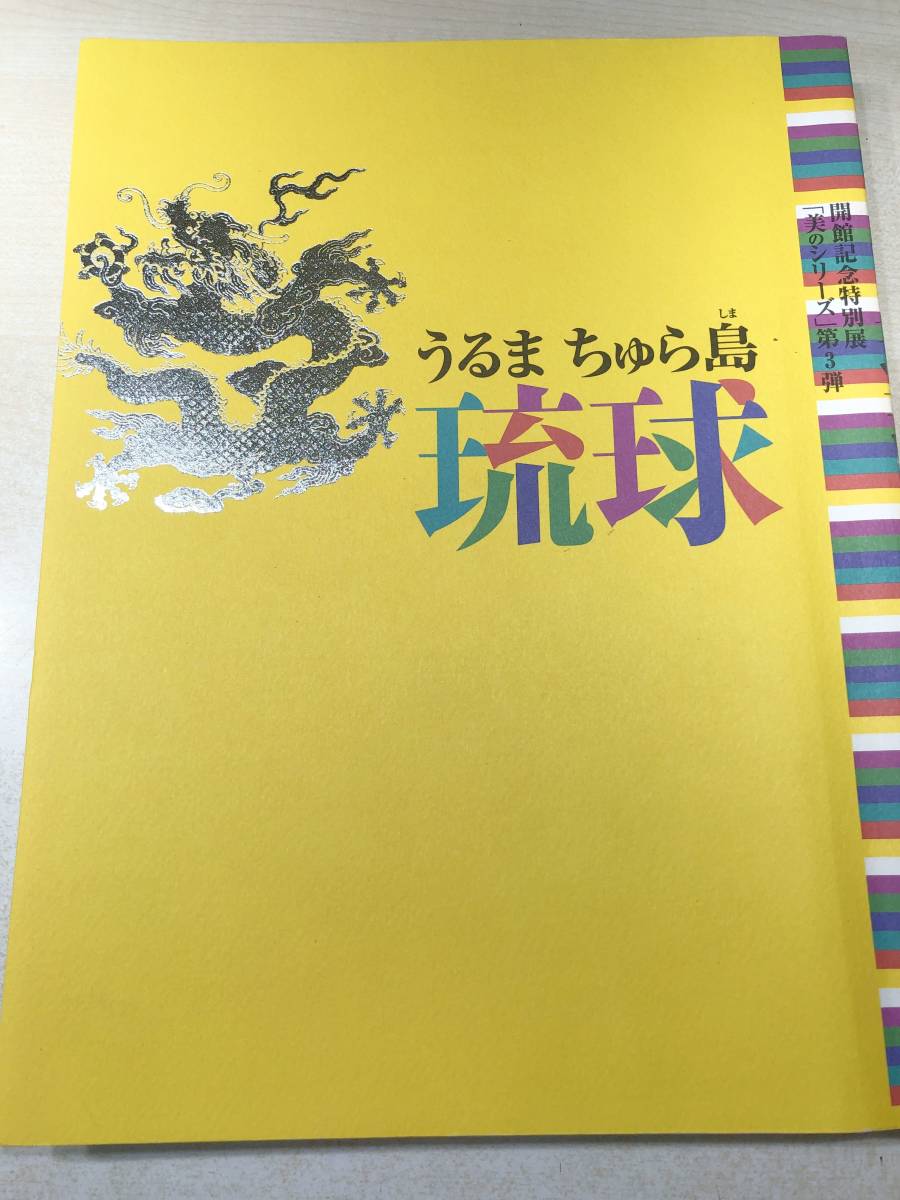 開館記念特別展
「美のシリーズ」第3弾
しま
うるま ちゅら島
琉球